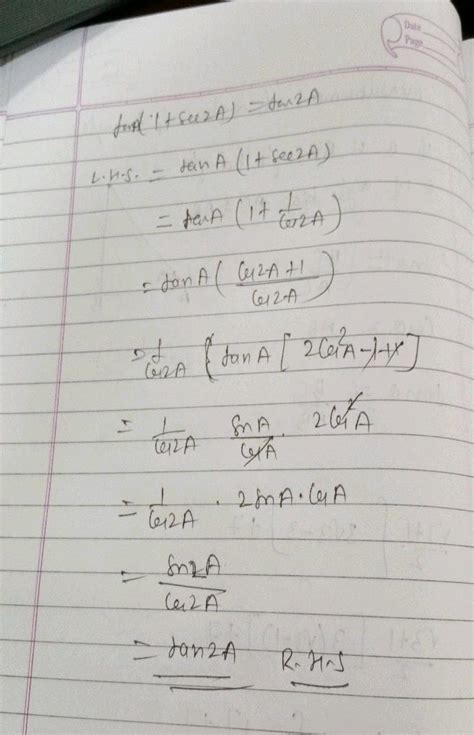 Date
Page
tanA(1+sec2A) = tan2A
L.H.S. = tanA (1+sec2A)
= tanA (1+ 1/cos2A)
= tanA (cos2A+1/cos2A)
= 1/cos2A {tanA [2cos²A-1+1]
= 1/cos2A sinA/cosA . 2cos²A
= 1/cos2A . 2sinA.cosA
= sin2A/cos2A
= tan2A R.H.S